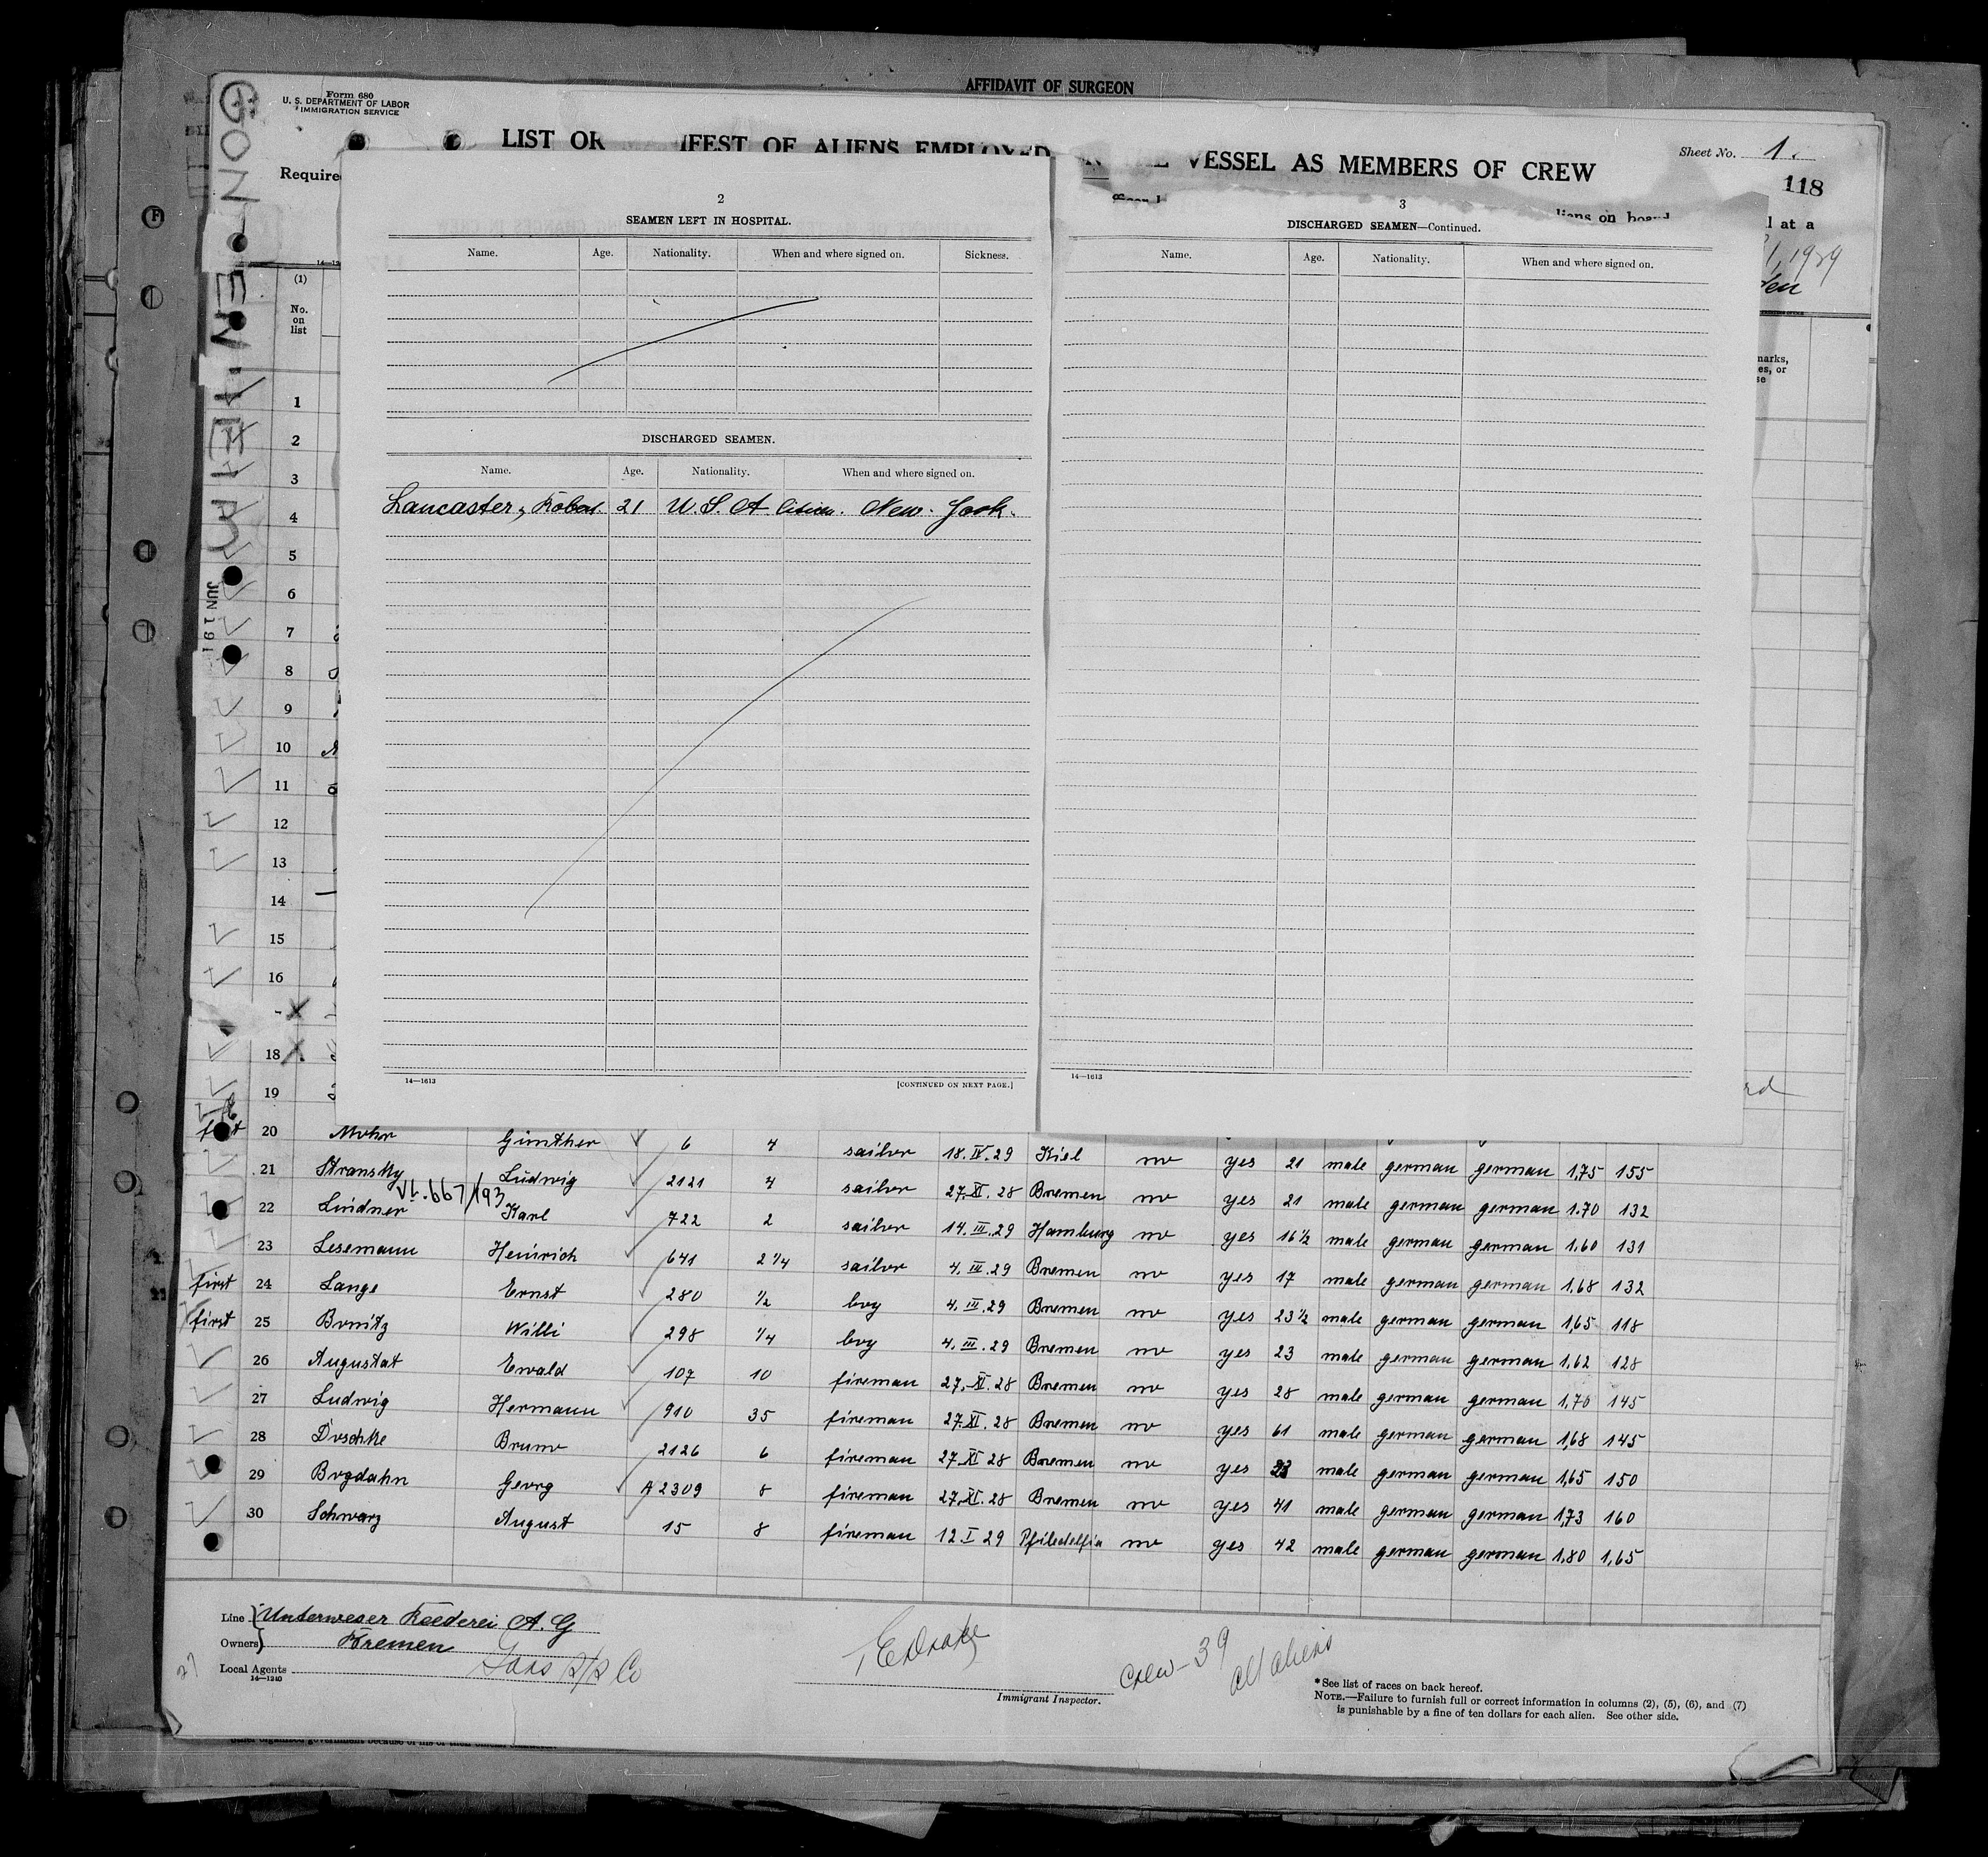 AFFIDAVIT OF SURGEON
Form 680
U. S. DEPARTMENT OF LABOR
IMMIGRATION SERVICE
LIST OR IFEST OF ALIENS EMPLOYED VESSEL AS MEMBERS OF CREW
Sheet No. 1.
118
Require
liens on board
l at a
1, 1929
(1)
No.
on
list
marks,
es, or
se
2
SEAMEN LEFT IN HOSPITAL.
Name. Age. Nationality. When and where signed on. Sickness.
DISCHARGED SEAMEN.
Name. Age. Nationality. When and where signed on.
Lancaster, Robert 21 U. S. A. Citizen. New-York.
14—1613
[CONTINUED ON NEXT PAGE.]
3
DISCHARGED SEAMEN—Continued.
Name. Age. Nationality. When and where signed on.
14—1613
JUN 19 1
1
2
3
4
5
6
7
8
9
10
11
12
13
14
15
16
18 X
19
20 Mohr Günther 6 4 sailor 18. IV. 29 Kiel no yes 21 male german german 1,75 155
21 Stransky Ludwig 2121 4 sailor 27. XI. 28 Bremen no yes 21 male german german 1.70 132
VI-667/193
22 Lindner Karl 722 2 sailor 14. III. 29 Hamburg no yes 16 1/2 male german german 1.60 131
23 Lesemann Heinrich 641 2 1/4 sailor 4. III. 29 Bremen no yes 17 male german german 1,68 132
first 24 Lange Ernst 280 1/2 boy 4. III. 29 Bremen no yes 23 1/2 male german german 1,65 118
first 25 Bonitz Willi 298 1/4 boy 4. III. 29 Bremen no yes 23 male german german 1,62 128
26 Augustat Ewald 107 10 fireman 27. XI. 28 Bremen no yes 28 male german german 1,70 145
27 Ludwig Hermann 910 35 fireman 27. XI. 28 Bremen no yes 61 male german german 1,68 145
28 Doschke Bruno 2126 6 fireman 27. XI 28 Bremen no yes 23 male german german 1,65 150
29 Bogdahn Georg A 2309 8 fireman 27. XI. 28 Bremen no yes 41 male german german 1,73 160
30 Schwarz August 15 8 fireman 12 I 29 Pfiledelfia no yes 42 male german german 1,80 1,65
Line Unterweser Reederei A. G
Owners Bremen
Local Agents
14—1240
Immigrant Inspector.
Crew - 39
all aliens
* See list of races on back hereof.
NOTE.—Failure to furnish full or correct information in columns (2), (5), (6), and (7)
is punishable by a fine of ten dollars for each alien. See other side.
27